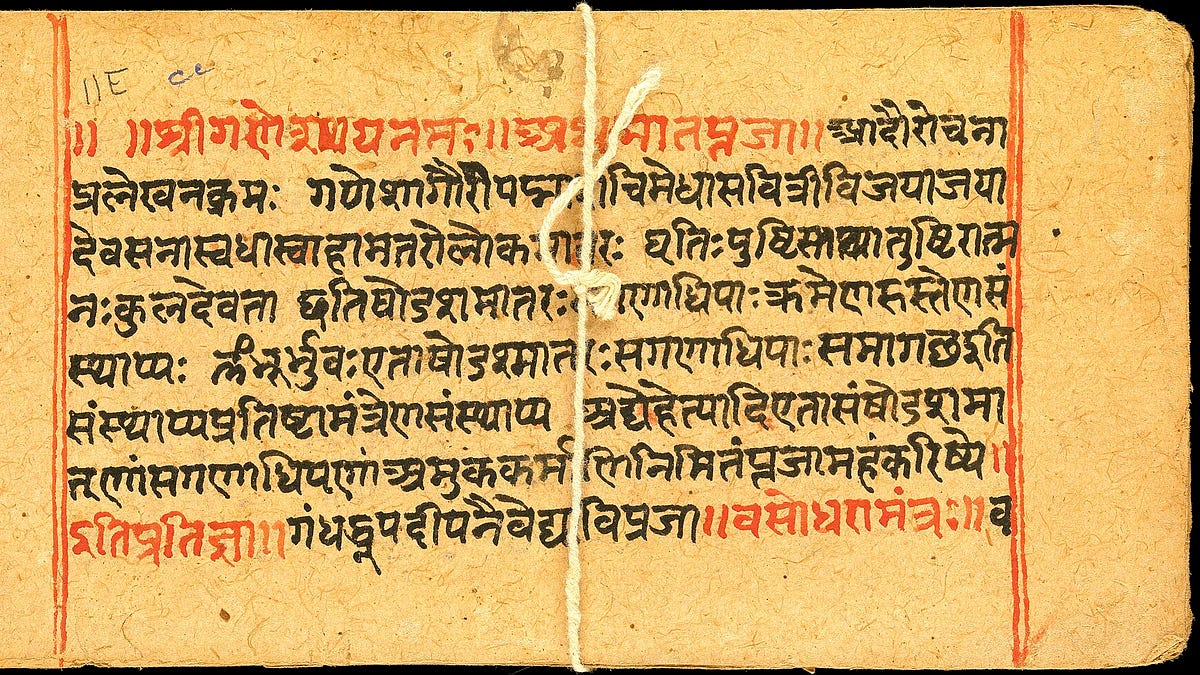 ११E ८८
॥ ॥श्रीगणेशाययनमः॥अथ मातपूजा॥आदौरोचना
प्रलेखनक्रमः गणेशागौरीपद्मा चिमेधासवित्रीविजयाजया
देवसेनास्वधास्वाहामातरोलोक मातरः धृतिःपुष्टिस्तथातुष्टिरात्म
नःकुलदेवता इतिषोडशमातरः णाधिपाःक्रमेणहस्तेणसं
स्थाप्यः ॐभूर्भुवःएताषोडश्मातरःसगणाधिपाःसमागछइति
संस्थाप्यप्रतिष्टामंत्रेणसंस्थाप्य अद्येहेत्यादिएतासंषोडशमा
तृणांसगणाधिपणांअमुककर्माणिनिमितंपूजामहंकरिष्ये॥
इतिप्रतिज्ञा॥गंधधूपदीपनैवेद्य विपूजा॥वसोधरामंत्रः॥व